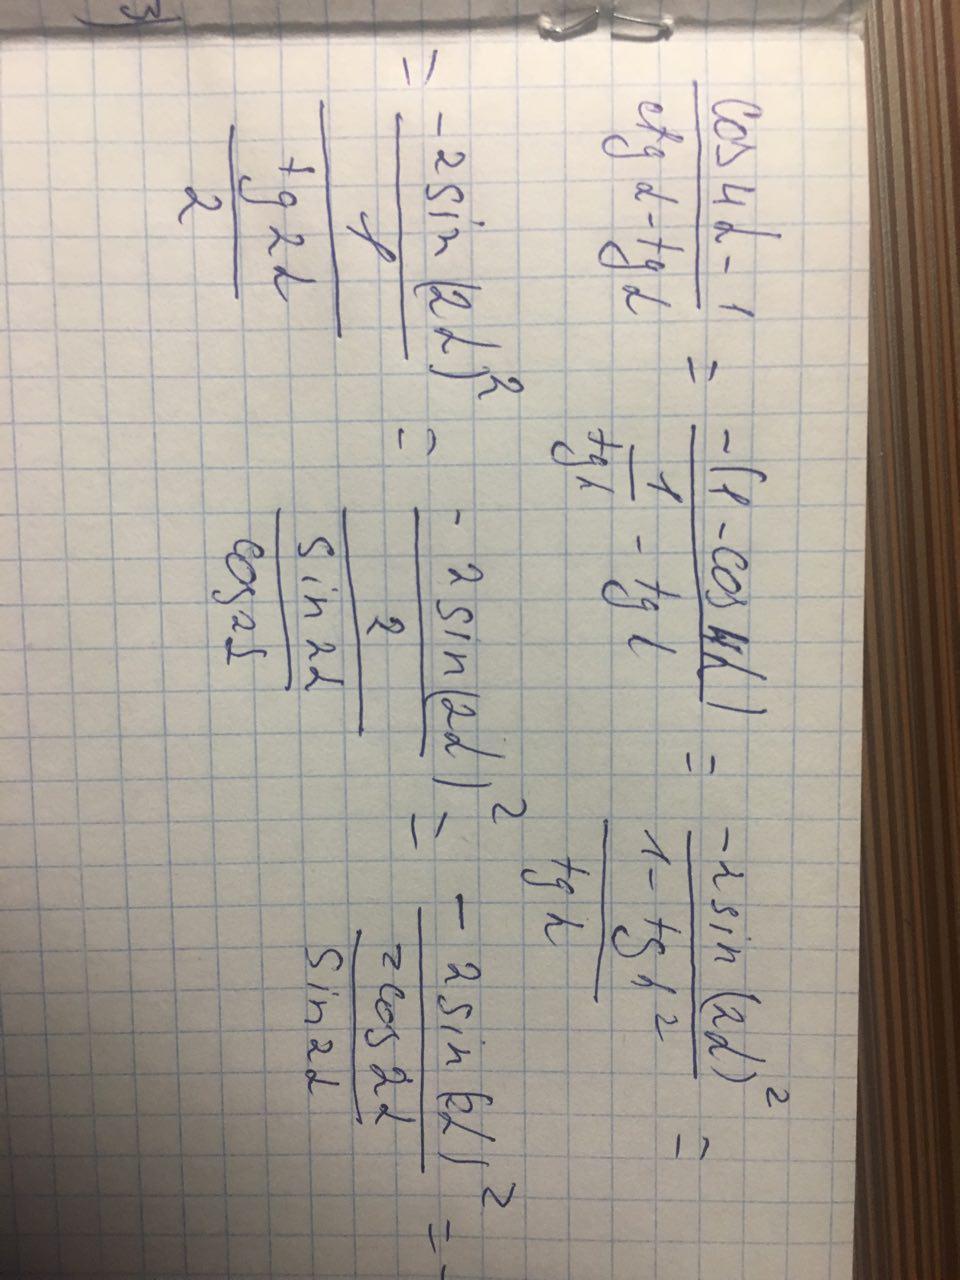 cos4α - 1 / ctgα - tgα = -(1 - cos4α) / 1/tgα - tgα = -2sin(2α)² / 1 - tgα² / tgα =
= -2sin(2α)² / 1 / tg2α / 2 = -2sin(2α)² / 2 / sin2α / cos2α = -2sin(2α)² / 2cos2α / sin2α = -
3)